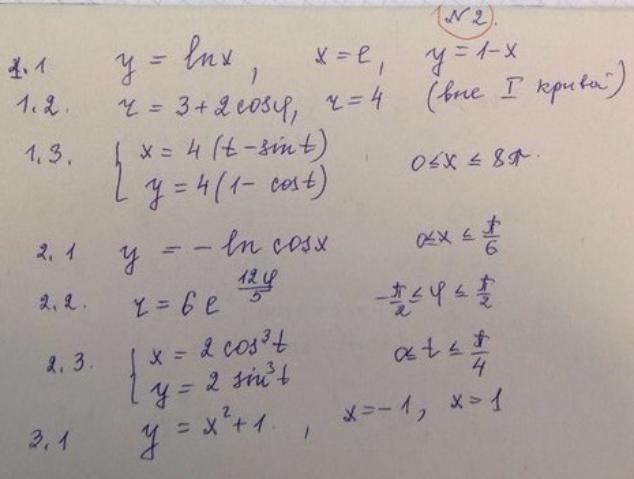 №2.
1.1 y = ln x, x = e, y = 1-x
1.2. r = 3+2cosφ, r = 4 (вне I кривой)
1.3. { x = 4(t-sint) 0≤x≤8π.
y = 4(1-cost)
2.1 y = -ln cosx 0≤x≤π/6
2.2. r = 6e^(12φ/5) -π/2≤φ≤π/2
2.3. { x = 2cos³t 0≤t≤π/4
y = 2 sin³t
3.1 y = x²+1, x=-1, x=1